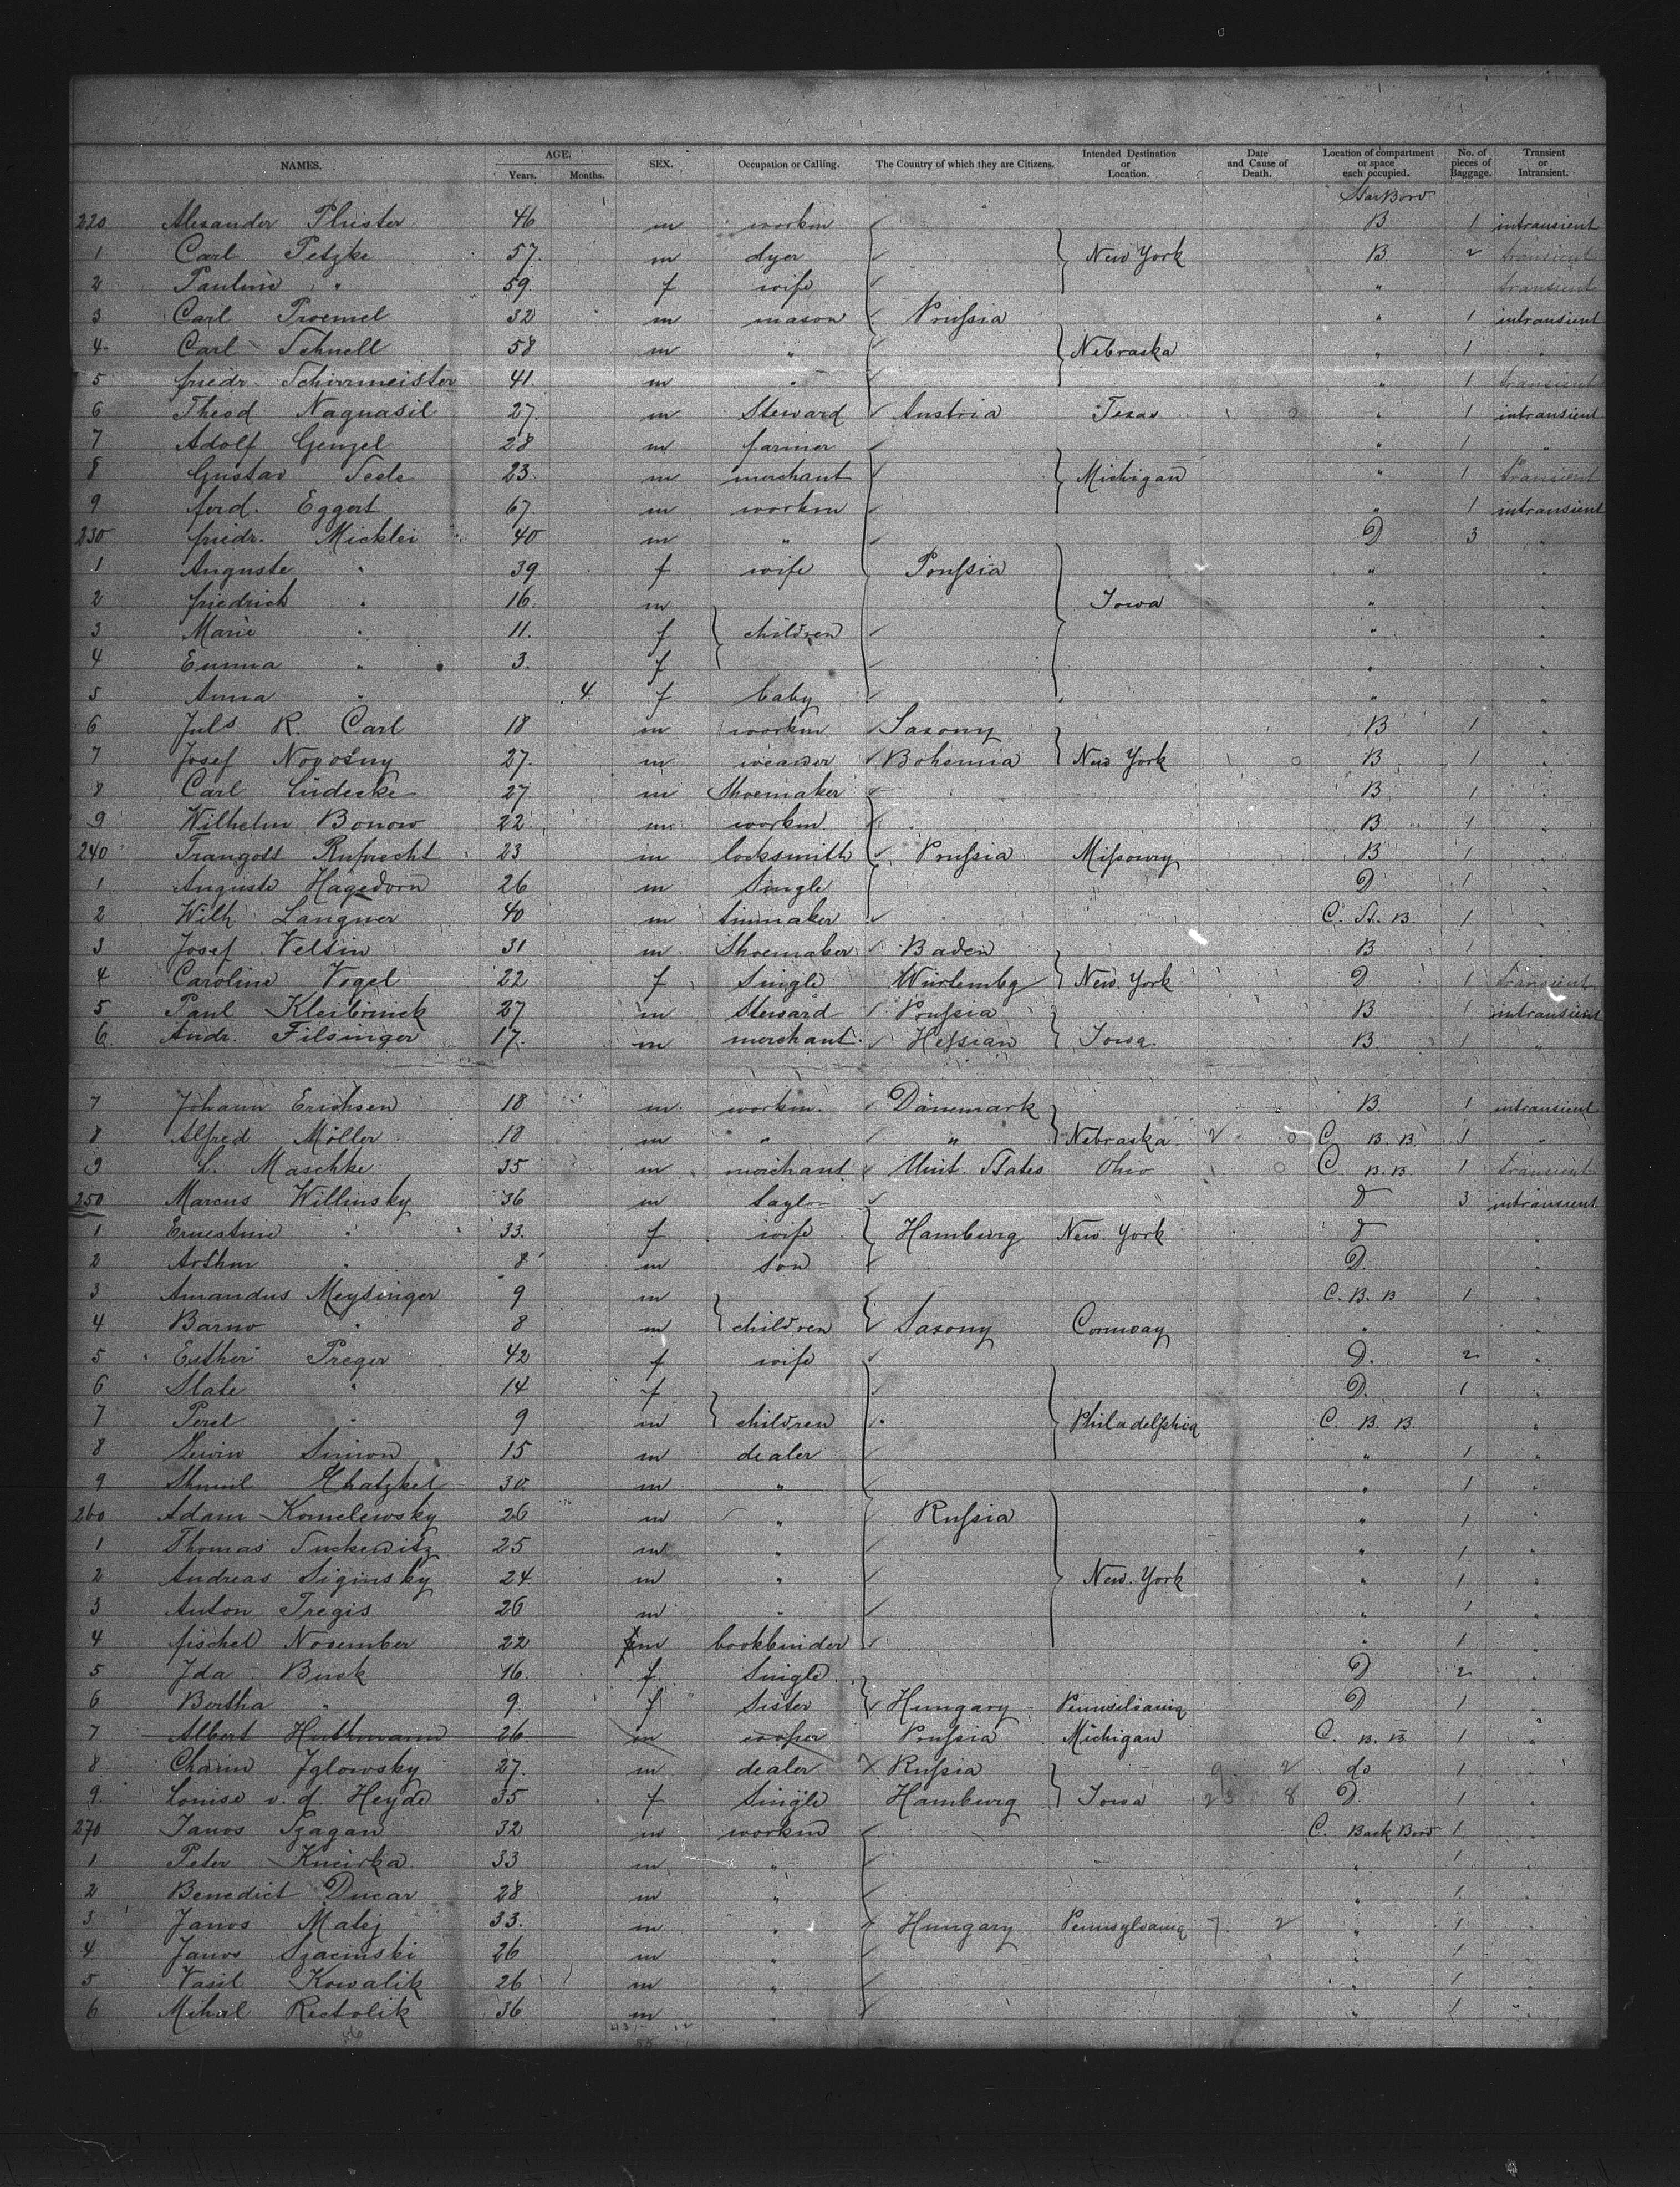 NAMES. AGE. Years. Months. SEX. Occupation or Calling. The Country of which they are Citizens. Intended Destination or Location. Date and Cause of Death. Location of compartment or space each occupied. No. of pieces of Baggage. Transient or Intransient.
StarBord
220 Alexander Pfiister 46 m workm B 1 intransient
1 Carl Petzke 57. m dyer New York B. 2 transient
2 Pauline " 59. f wife " transient
3 Carl Troemel 32 m mason Prussia " 1 intransient
4. Carl Schnell 58 m " Nebraska " 1 "
5 friedr. Schirrmeister 41. m " " 1 transient
6 Theod Naguasil 27. m Steward Austria Texas " 1 intransient
7 Adolf Genzel 28 m farmer " 1 "
8 Gustav Teele 23. m merchant Michigan " 1 transient
9 ferd. Eggert 67. m workm " 1 intransient
230 friedr. Micklei 40 m " D 3 "
1 Auguste " 39. f wife Prussia " "
2 friedrich " 16. m Iowa " "
3 Marie " 11. f children " "
4 Emma " 3. f " "
5 Anna " 4. f baby " "
6 Juls R. Carl 18 m workm Saxony B 1 "
7 Josef Novotny 27. m weawer Bohemia New York B 1 "
8 Carl Lüdecke 27 m Shoemaker B 1 "
9 Wilhelm Bonow 22 m workm B 1 "
240 Traugott Ruprecht 23 m locksmith Prussia Missoury B 1 "
1 Auguste Hagedorn 26 m Single D 1 "
2 Wilh. Langner 40 m tinmaker C. St. B. 1 "
3 Josef Veltin 31 m Shoemaker Baden B 1 "
4 Caroline Vogel 22 f Single Würtembg New York D 1 transient
5 Paul Kleibrinck 27 m Steward Prussia B 1 intransient
6. Andr. Filsinger 17. m merchant. Hessian Iowa B. 1 "
7 Johann Erichsen 18 m. workm. Dänemark B. 1 intransient
8 Alfred Möller 18 m " " Nebraska C B. B. 1 "
9 L. Maschke 35 m merchant Unit. States Ohio C B.B. 1 transient
250 Marcus Willinsky 36 m taylor D 3 intransient
1 Ernestine " 33. f wife Hamburg New York D "
2 Arthur " 8 m son D. "
3 Amandus Meysinger 9 m C. B. B 1 "
4 Barno " 8 m children Saxony Connway " "
5 Esther Preger 42 f wife D. 2 "
6 Slate " 14 f D. 1 "
7 Perel " 9 m children Philadelphia C. B. B. "
8 Lewin Simon 15 m dealer " 1 "
9 Shmul Chatzkel 30. m " " 1 "
260 Adam Komelewsky 26 m " Russia " 1 "
1 Thomas Tuckewitz 25 m " " 1 "
2 Andreas Siginsky 24. m " New York " 1 "
3 Anton Tregis 26 m " " 1 "
4 fischel November 22 m bookbinder " 1 "
5 Ida Buck 16. f. Single D 2 "
6 Bertha " 9. f Sister Hungary Pennsilvania D 1 "
7 Albert Huthmann 26 m cooper Prussia Michigan C. B. B 1 "
8 Chaim Iglowsky 27. m dealer Russia do 1 "
9. Louise v. d. Heyde 35 f Single Hamburg Iowa D. 1 "
270 Janos Szagan 32 m workm C. Back Bord 1 "
1 Peter Kucirka. 33 m " " 1 "
2 Benedict Ducar 28 m " " 1 "
3 Janos Matej 33. m " Hungary Pennsylvania " 1 "
4 Janos Szacinski 26 m " " 1 "
5 Vasil Kowalik 26 m " " 1 "
6 Mihal Rectolik 36 m " " 1 "